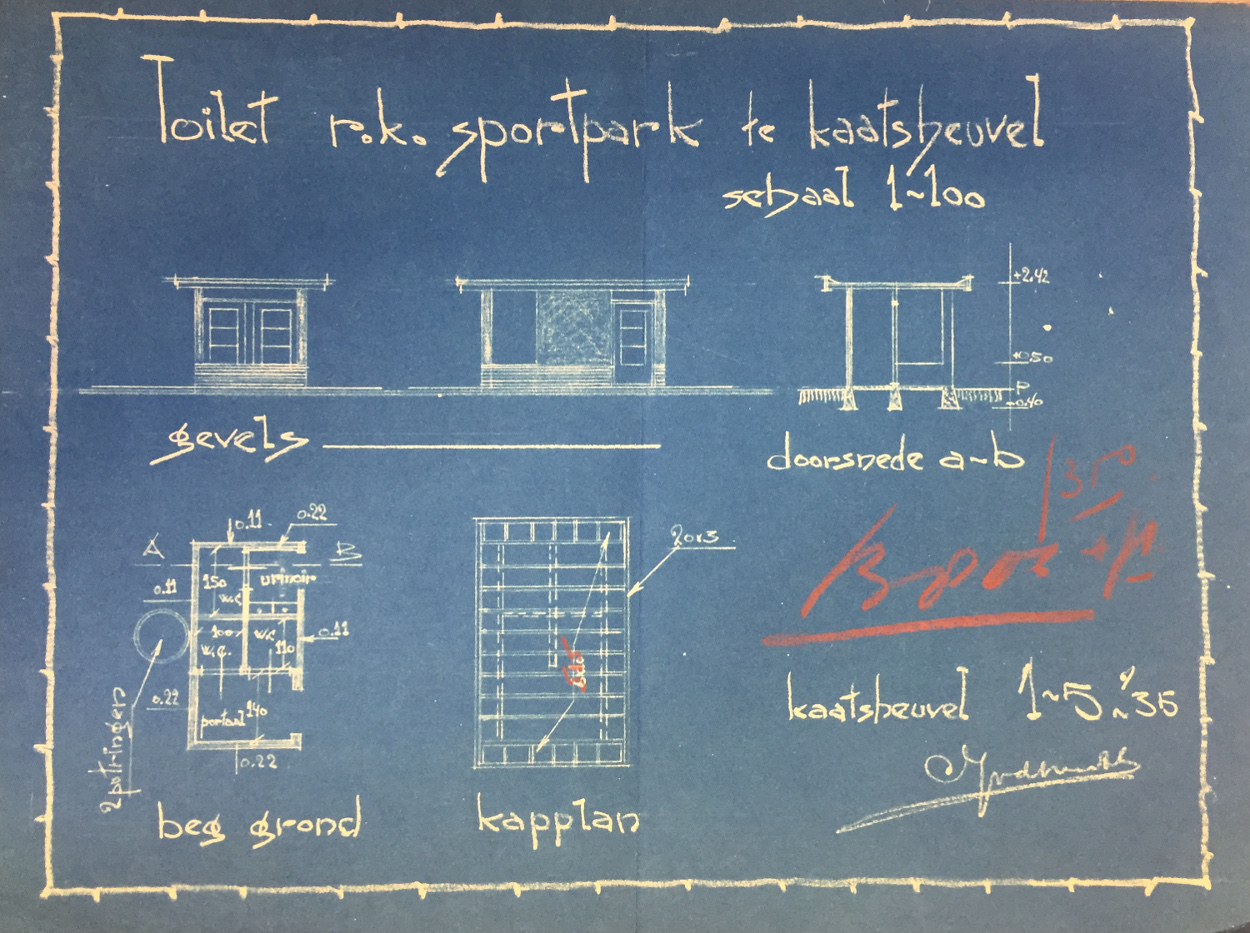 Toilet r.k. sportpark te kaatsheuvel
schaal 1~100
+2.42
+0.50
P
-0.40
gevels
doorsnede a~b
350
0.11
0.22
A
B
0.11
150
urinoir
w.c.
100
w.c.
w.c.
110
0.11
0.22
portaal
140
0.22
2 putringen
beg grond
kapplan
kaatsheuvel 1~5~'35